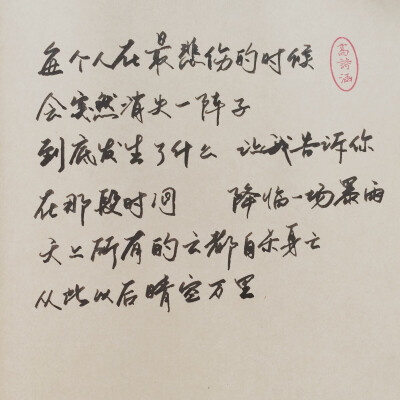 每个人在最悲伤的时候
会突然消失一阵子
到底发生了什么 让我告诉你
在那段时间 降临一场暴雨
天上所有的云都自杀身亡
从此以后晴空万里
高诗涵